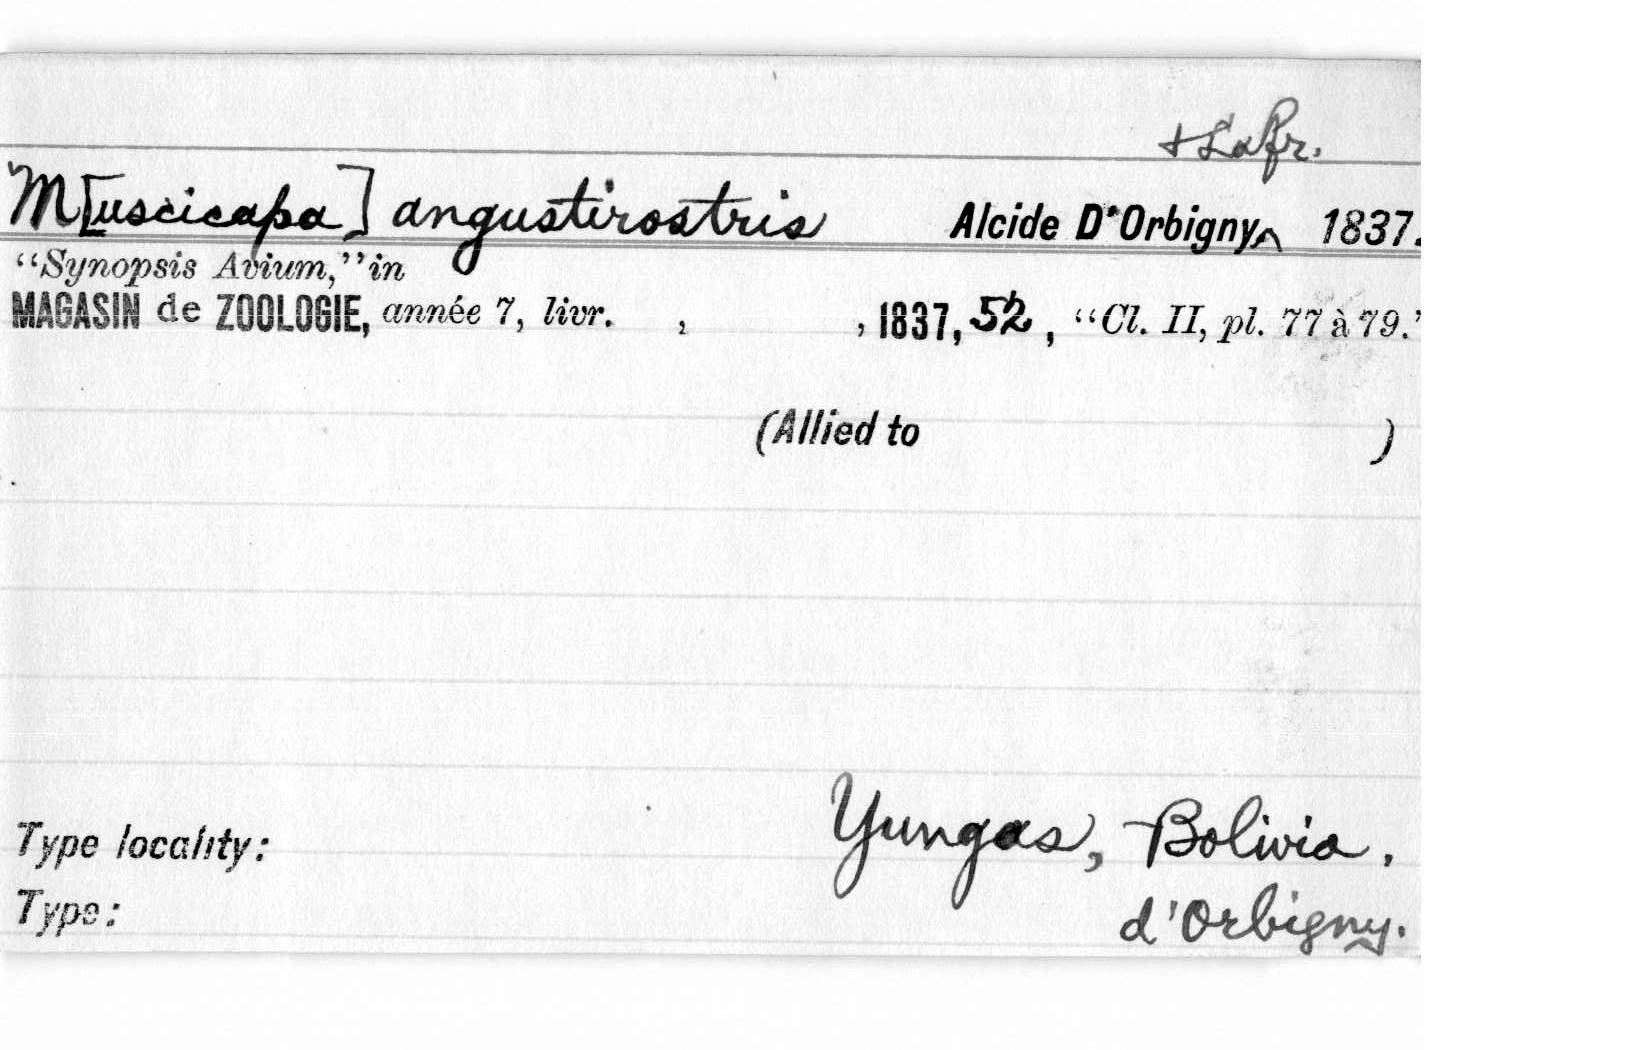 + Lafr.
M[uscicapa] angustirostris Alcide D'Orbigny^ 1837.
"Synopsis Avium," in
MAGASIN de ZOOLOGIE, année 7, livr. , , 1837, 52, "Cl. II, pl. 77 à 79."
(Allied to )
Type locality: Yungas, Bolivia.
Type: d'Orbigny.